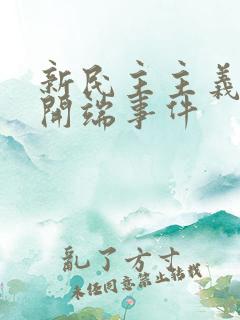 新民主主義
開端事件
亂了方寸
未經同意禁止轉載